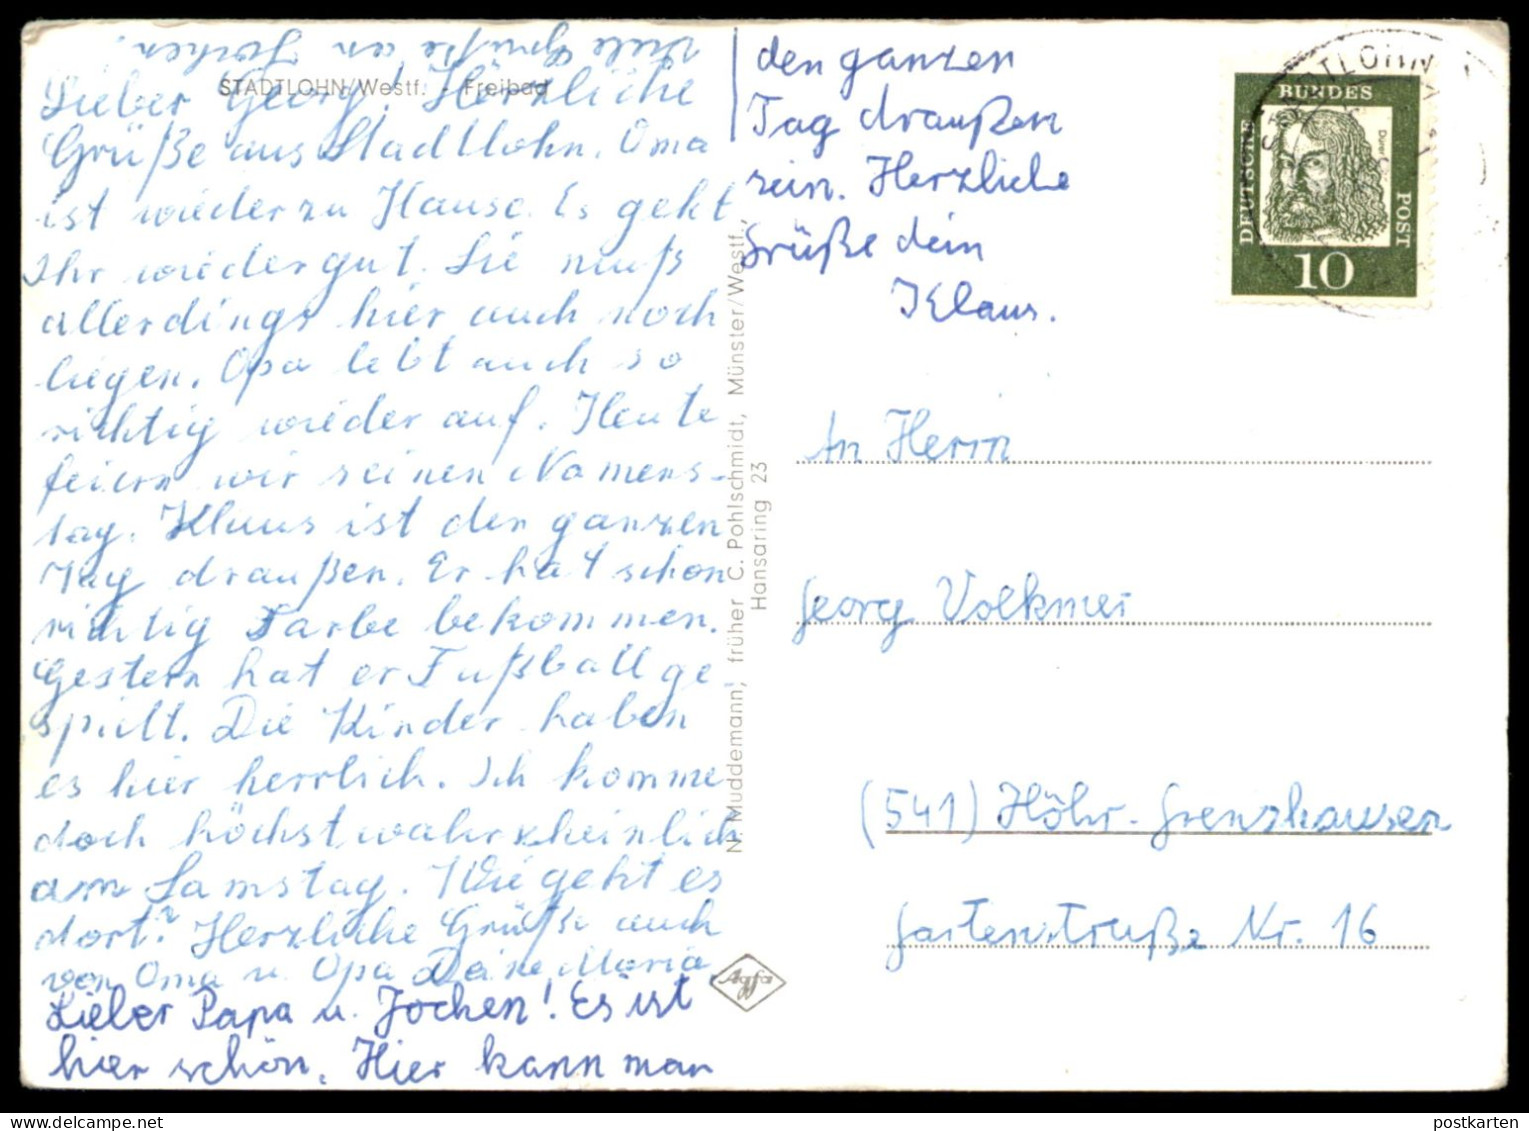 Viele Grüße an Jochen!
STADTLOHN/Westf. - Freibad
Lieber Georg! Herzliche
Grüße aus Stadtlohn. Oma
ist wieder zu Hause. Es geht
Ihr wieder gut. Sie muß
allerdings hier auch noch
liegen. Opa lebt auch so
richtig wieder auf. Heute
feiern wir seinen Namens-
tag. Klaus ist den ganzen
Tag draußen. Er hat schon
richtig Farbe bekommen.
Gestern hat er Fußball ge
spielt. Die Kinder haben
es hier herrlich. Ich komme
doch höchstwahrscheinlich
am Samstag. Wie geht es
dort? Herzliche Grüße auch
von Oma u. Opa Deine Maria.
Lieber Papa u. Jochen! Es ist
hier schön. Hier kann man
den ganzen
Tag draußen
sein. Herzliche
Grüße dein
Klaus.
N. Muddemann, früher C. Pohlschmidt, Münster/Westf.,
Hansaring 23
Agfa
STADTLOHN
DEUTSCHE
BUNDES
POST
Dürer
10
An Herrn
Georg Volkmer
(541) Höhr-Grenzhausen
Gartenstraße Nr. 16
postkarten